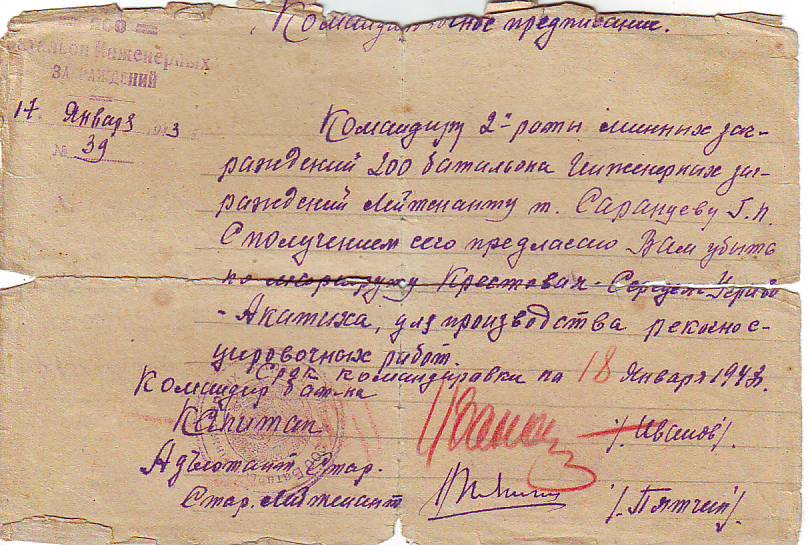 Командировочное предписание.
НКО
батальон Инженерных
ЗАГРАЖДЕНИЙ
17 Января 1943
№ 39
Командиру 2й роты минных заг-
раждений 200 батальона Инженерных заг-
раждений Лейтенанту т. Саранцеву Г.П.
С получением сего предлагаю Вам убыть
по маршруту Крестовая -
- Акатиха, для производства рекогнос-
цировочных работ.
Срок командировки по 18 Января 1943г.
Командир бат-на
Капитан /Иванов/.
Адъютант Стар.
Стар. Лейтенант /Пятчин/.